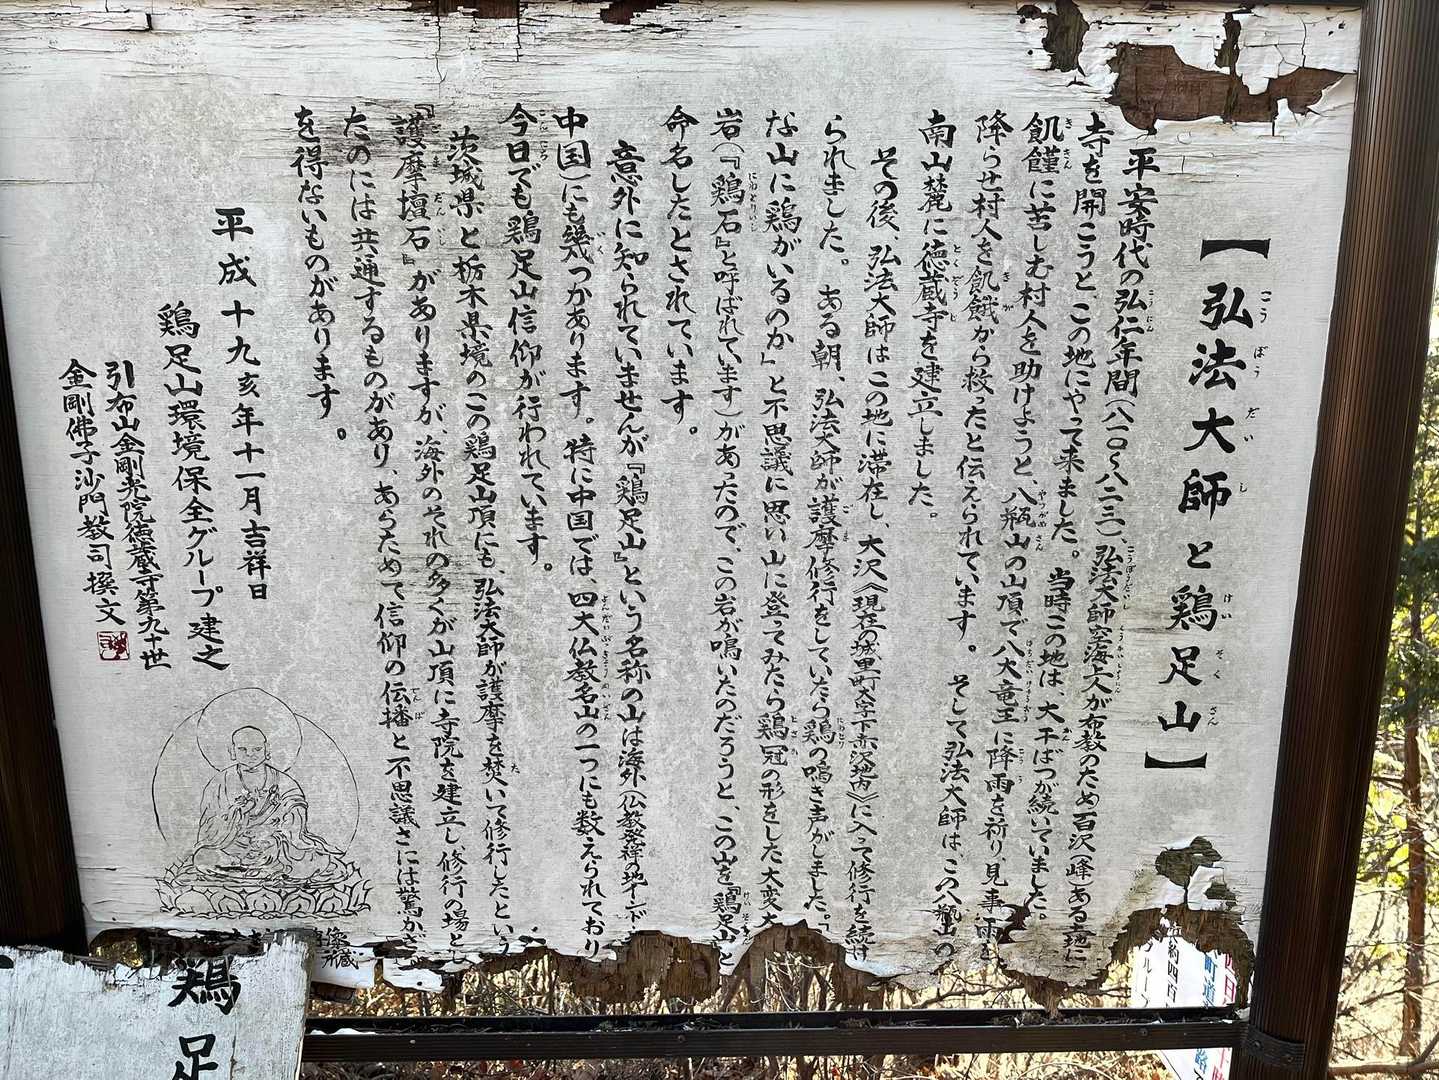 【弘法大師と鶏足山】
平安時代の弘仁年間(八一〇〜八二三)、弘法大師空海上人が布教のため百沢(峰)ある土地に
寺を開こうと、この地にやって来ました。当時この地は、大干ばつが続いていました。
飢饉に苦しむ村人を助けようと、八瓶山の山頂で八大竜王に降雨を祈り、見事雨を
降らせ村人を飢餓から救ったと伝えられています。そして弘法大師は、この八瓶山の
南山麓に徳蔵寺を建立しました。
その後、弘法大師はこの地に滞在し、大沢《現在の城里町大字下赤沢地内》に入って修行を続け
られました。ある朝、弘法大師が護摩修行をしていたら鶏の鳴き声がしました。「
な山に鶏がいるのか」と不思議に思い山に登ってみたら鶏冠の形をした大変大
岩(『鶏石』と呼ばれています)があったので、この岩が鳴いたのだろうと、この山を『鶏足山』と
命名したとされています。
意外に知られていませんが『鶏足山』という名称の山は海外(仏教発祥の地インド
中国)にも幾つかあります。特に中国では、四大仏教名山の一つにも数えられており
今日でも鶏足山信仰が行われています。
茨城県と栃木県境のこの鶏足山頂にも、弘法大師が護摩を焚いて修行したという
『護摩壇石』がありますが、海外のそれの多くが山頂に寺院を建立し、修行の場とし
たのには共通するものがあり、あらためて信仰の伝播と不思議さには驚かさ
を得ないものがあります。
平成十九亥年十一月吉祥日
鶏足山環境保全グループ建之
引布山金剛光院徳蔵寺第九十世
金剛佛子沙門教司撰文
鶏足